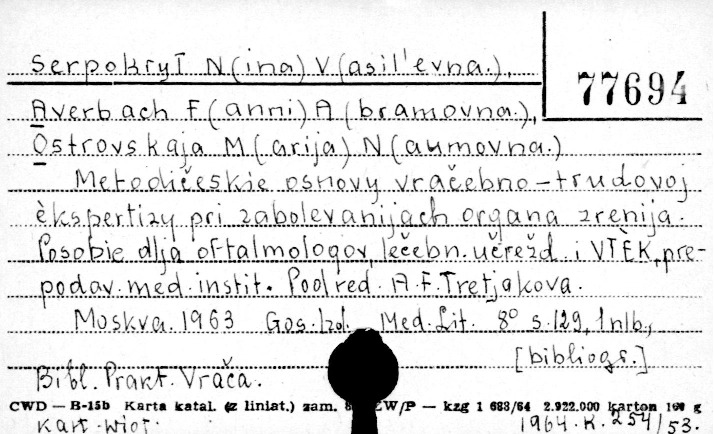 Serpokrył N(ina) V(asil'evna.),
77694
Averbach F(anni) A(bramovna.),
Ostrovskaja M(arija) N(aumovna.)
Metodičeskie osnovy vračebno-trudovoj
èkspertizy pri zabolevanijach organa zrenija.
Posobie dlja oftalmologov, lečebn. učrežd i VTÈK, pre-
podav. med. instit. Pod red. A. F. Tretjakova.
Moskva. 1963 Gos. Izd. Med. Lit. 8° s. 129, 1 nlb.,
[bibliogr.]
Bibl. Prakt. Vrača.
CWD — B-15b Karta katal. (z liniat.) zam. W/P — kzg 1 683/64 2.922.000 karton 160 g
kart. 1964. K. 254/53.